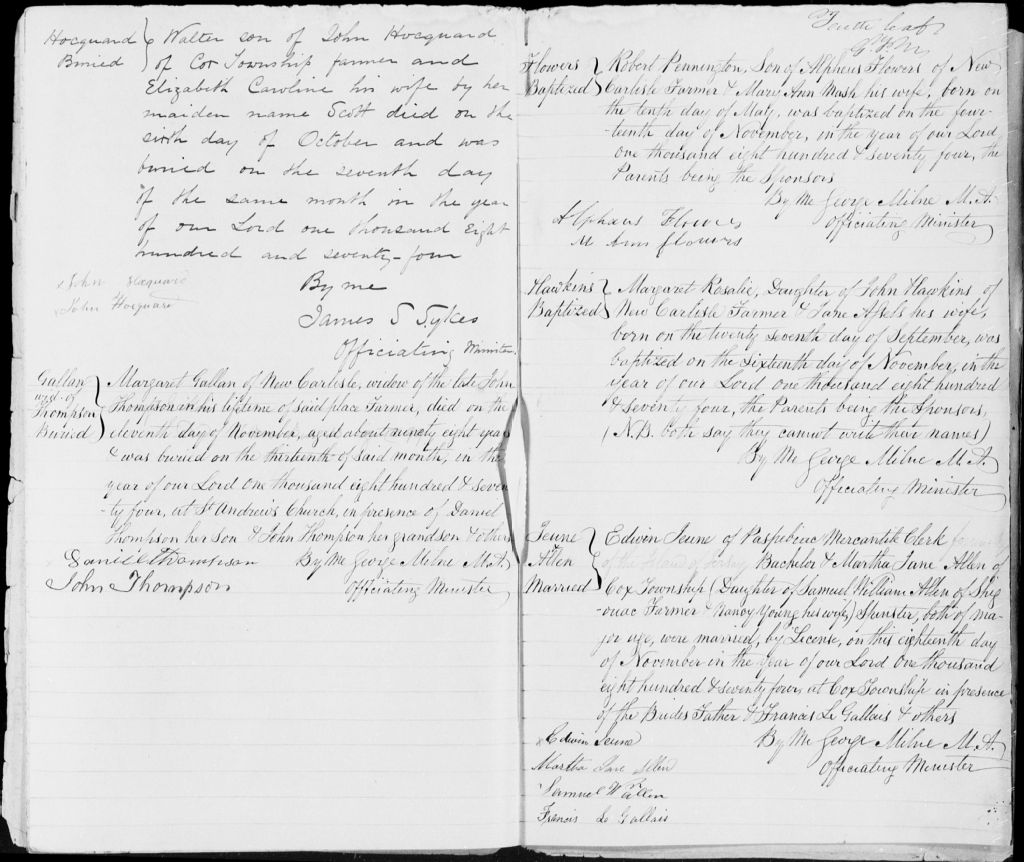 Hocquard Walter son of John Hocquard
Buried of Cox Township farmer and
Elizabeth Caroline his wife by her
maiden name Scott died on the
sixth day of October and was
buried on the seventh day
of the same month in the year
of our Lord one thousand eight
hundred and seventy-four
x John Hocquard By me
x John Hocquard James S Sykes
Officiating Minister.
Gallan Margaret Gallan of New Carlisle, widow of the late John
wid. of
Thompson Thompson in his lifetime of said place Farmer, died on the
Buried eleventh day of November, aged about ninety eight years
& was buried on the thirteenth of said month, in the
year of our Lord one thousand eight hundred & seven
-ty four, at St Andrew's Church, in presence of Daniel
Thompson her son & John Thompson her grandson & others
Daniel Thompson By Me George Milne M.A.
John Thompson Officiating Minister
Tenth leaf
G.F.M.
Flowers Robert Pennington, Son of Alpheus Flowers of New
Baptized Carlisle Farmer & Mary Ann Mash his wife, born on
the tenth day of May, was baptized on the four-
-teenth day of November, in the year of our Lord
one thousand eight hundred & seventy four, the
Parents being the Sponsors
By Me George Milne M.A.
Alphaeus Flowers Officiating Minister
M Ann flowers
Hawkins Margaret Rosalie, Daughter of John Hawkins of
Baptized New Carlisle Farmer & Jane Assels his wife,
born on the twenty seventh day of September, was
baptized on the Sixteenth day of November, in the
year of our Lord one thousand eight hundred
& seventy four, the Parents being the Sponsors,
(N.B. both say they cannot write their names)
By Me George Milne M.A.
Officiating Minister
Jeune Edwin Jeune of Paspebiac Mercantile Clerk formerly
Allen of the Island of Jersey Bachelor & Martha Jane Allen of
Married Cox Township (Daughter of Samuel William Allen of Shig
-ouac Farmer & Nancy Young his wife) Spinster, both of ma-
jor age, were married, by License, on this eighteenth day
of November in the year of our Lord one thousand
eight hundred & seventy four, at Cox Township in presence
of the Brides Father & Francis Le Gallais & others
x Edwin Jeune By Me George Milne M.A.
Martha Jane Allen Officiating Minister
Samuel W Allen
Francis Le Gallais